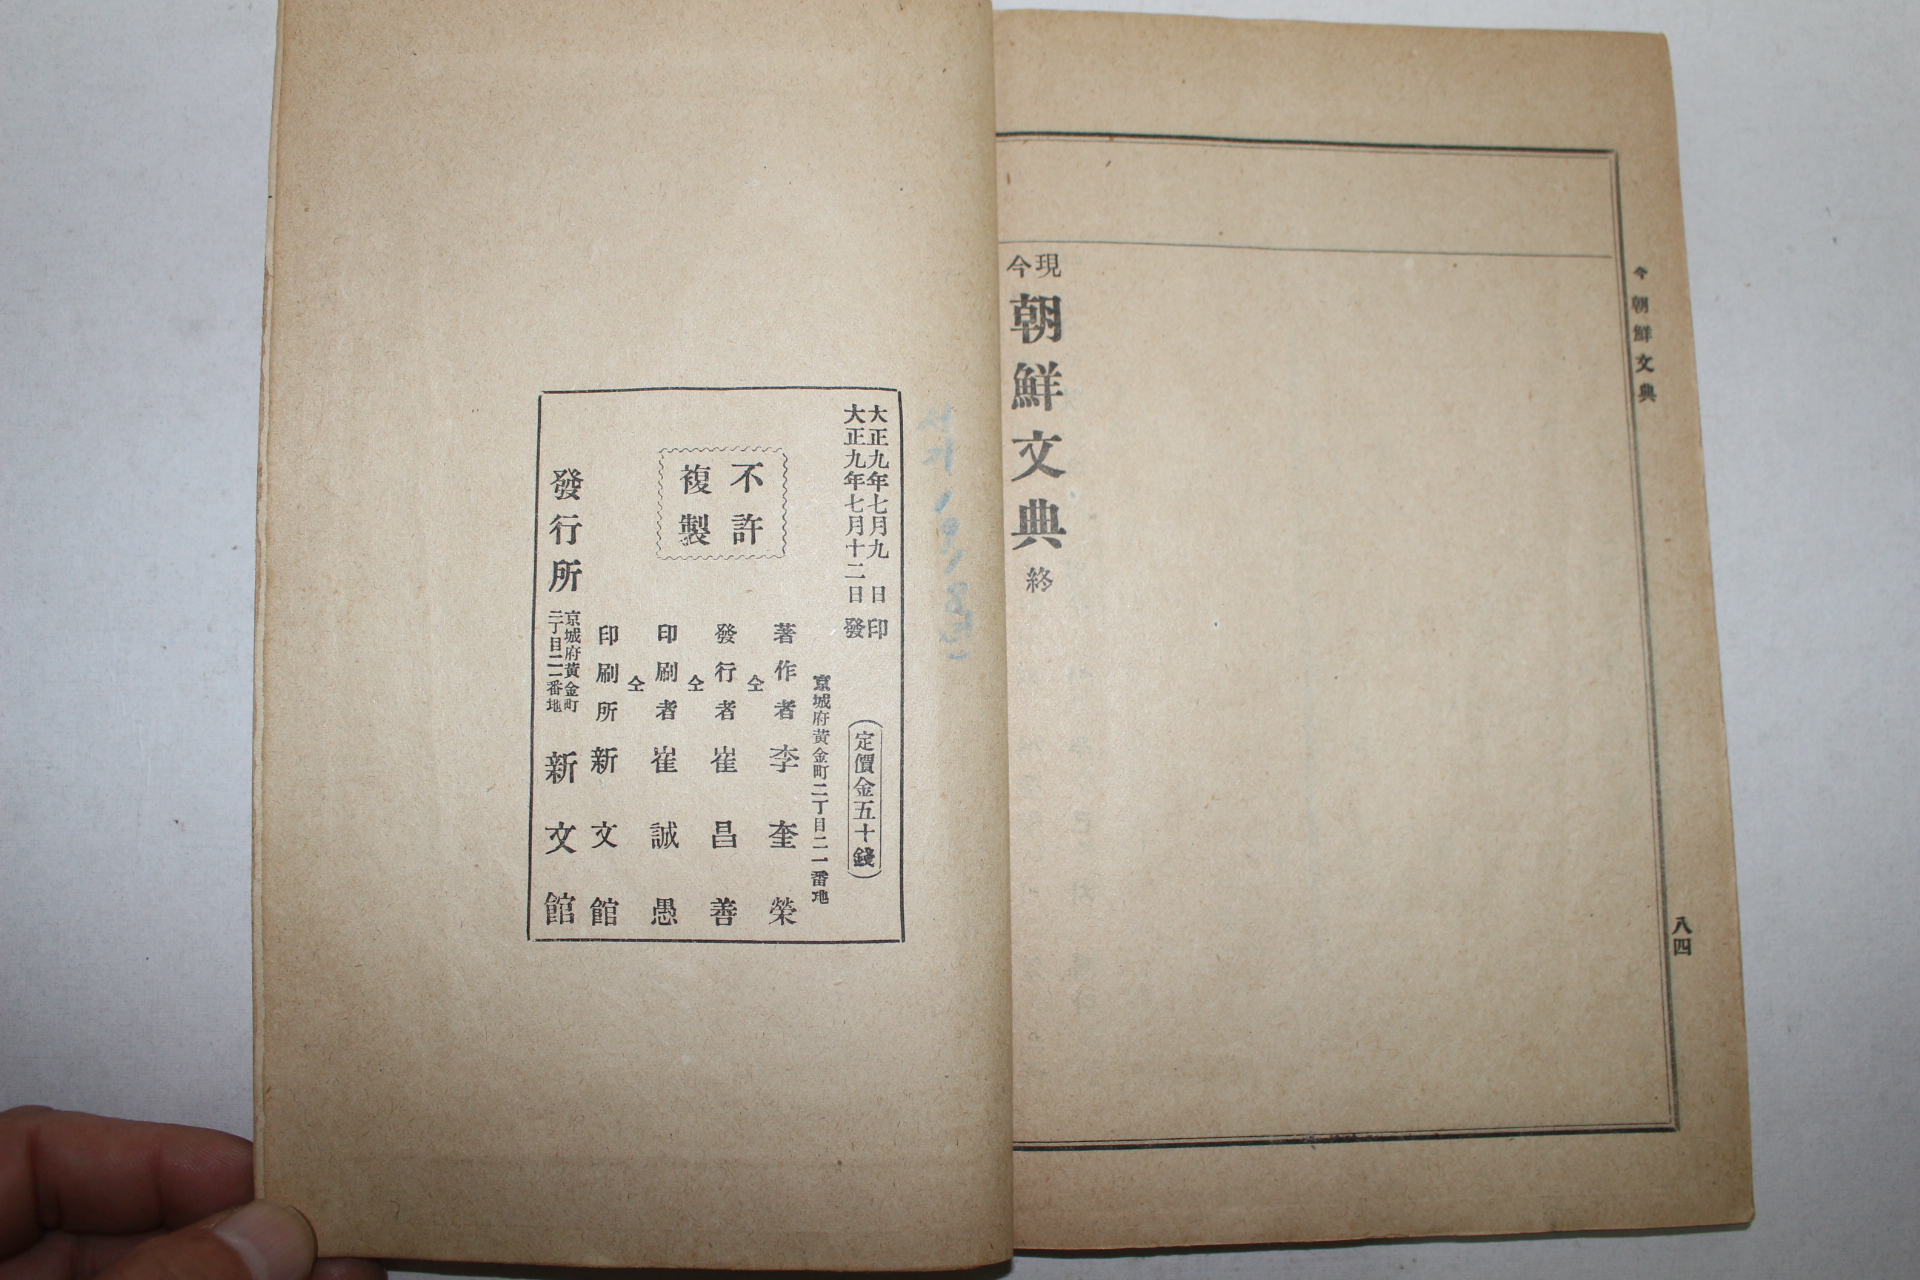 今 朝鮮文典
八四
現今 朝鮮文典 終
서기
大正九年七月九日印
大正九年七月十二日發
(定價金五十錢)
京城府黃金町二丁目二一番地
不許
複製
著作者 李奎榮
仝
發行者 崔昌善
仝
印刷者 崔誠愚
仝
印刷所 新文館
發行所 京城府黃金町二丁目二一番地 新文館